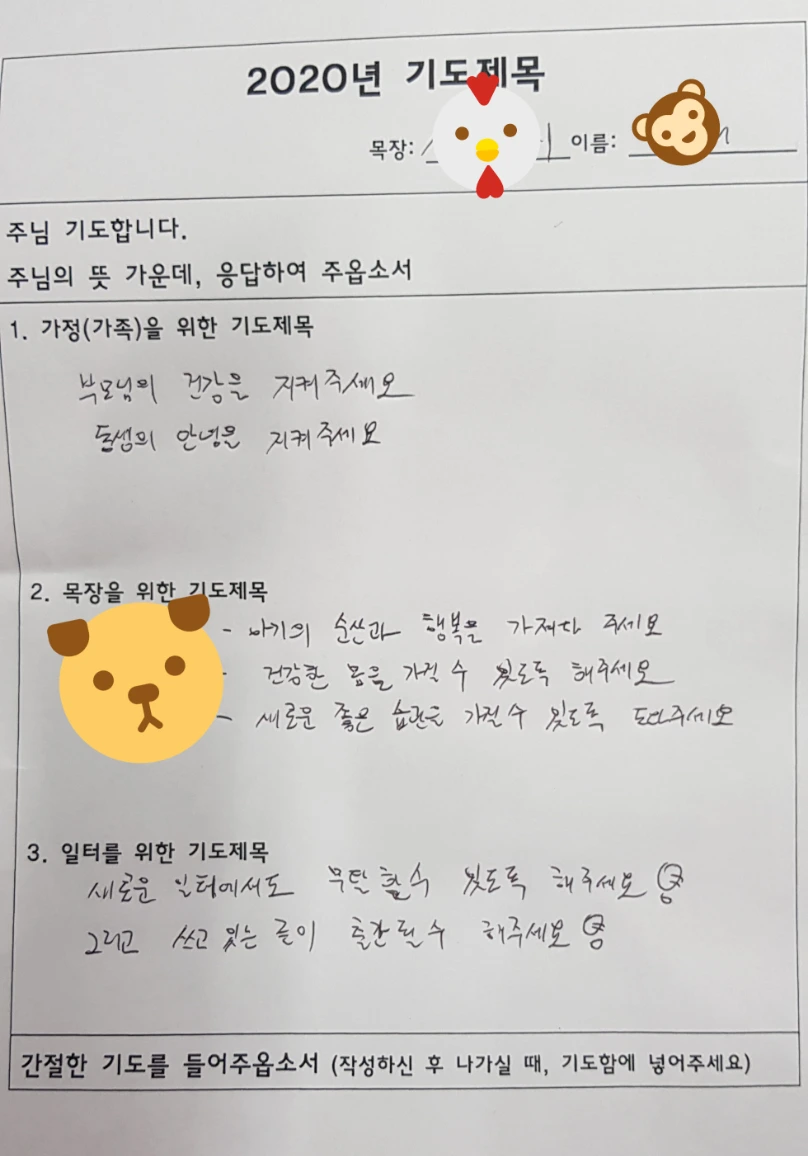 2020년 기도제목
목장: 이름:
주님 기도합니다.
주님의 뜻 가운데, 응답하여 주옵소서
1. 가정(가족)을 위한 기도제목
부모님의 건강을 지켜주세요
동생의 안녕을 지켜주세요
2. 목장을 위한 기도제목
- 아기의 순산과 행복을 가져다 주세요
- 건강한 몸을 가질 수 있도록 해주세요
- 새로운 좋은 습관을 가질 수 있도록 도와주세요
3. 일터를 위한 기도제목
새로운 일터에서도 무탈 할 수 있도록 해주세요
그리고 쓰고 있는 글이 출간 될 수 해주세요
간절한 기도를 들어주옵소서 (작성하신 후 나가실 때, 기도함에 넣어주세요)